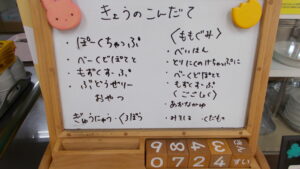 きょうのこんだて
・ぽーくちゃっぷ
・べーくどぽてと
・もずくすーぷ
・ぶどうぜりー
おやつ
ぎゅうにゅう・くろぼう
〈ももぐみ〉
・べいはん
・とりにくのけちゃっぷに
・べーくどぽてと
・もずくすーぷ
〈ごごしょく〉
・あおながゆ
・みそしる ・くだもの
9 8 6 4 3
0 7 2 4 すい